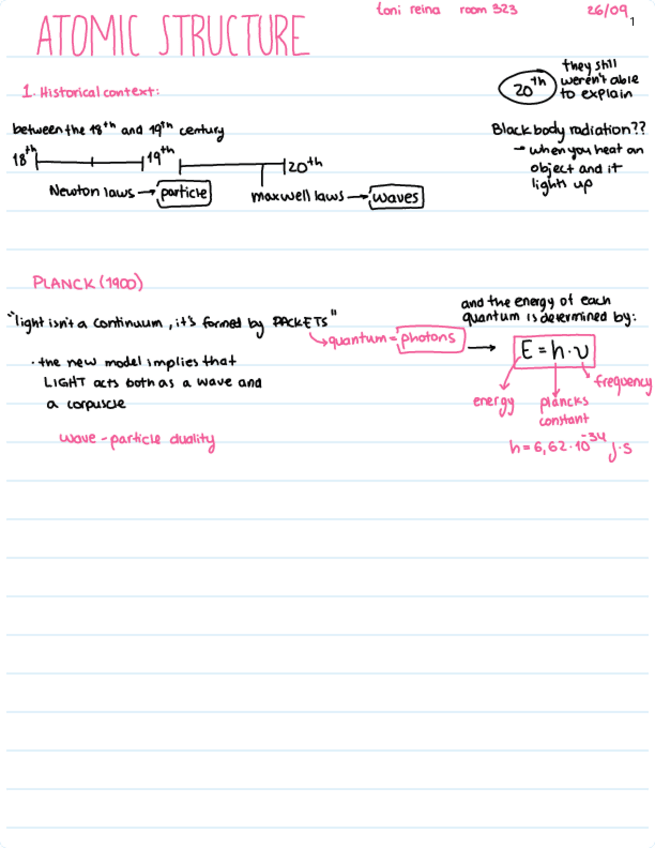 toni reina room 323 26/09
1
ATOMIC STRUCTURE
1. Historical context:
20th
they still
weren't able
to explain
between the 18th and 19th century
18th 19th 20th
Newton laws → particle
maxwell laws → waves
Black body radiation??
→ when you heat an
object and it
lights up
PLANCK (1900)
"light isn't a continuum, it's formed by PACKETS"
quantum = photons →
and the energy of each
quantum is determined by:
E = h · ν
energy
plancks
constant
frequency
h = 6,62 · 10^-34 J·s
· the new model implies that
LIGHT acts both as a wave and
a corpuscle
wave - particle duality